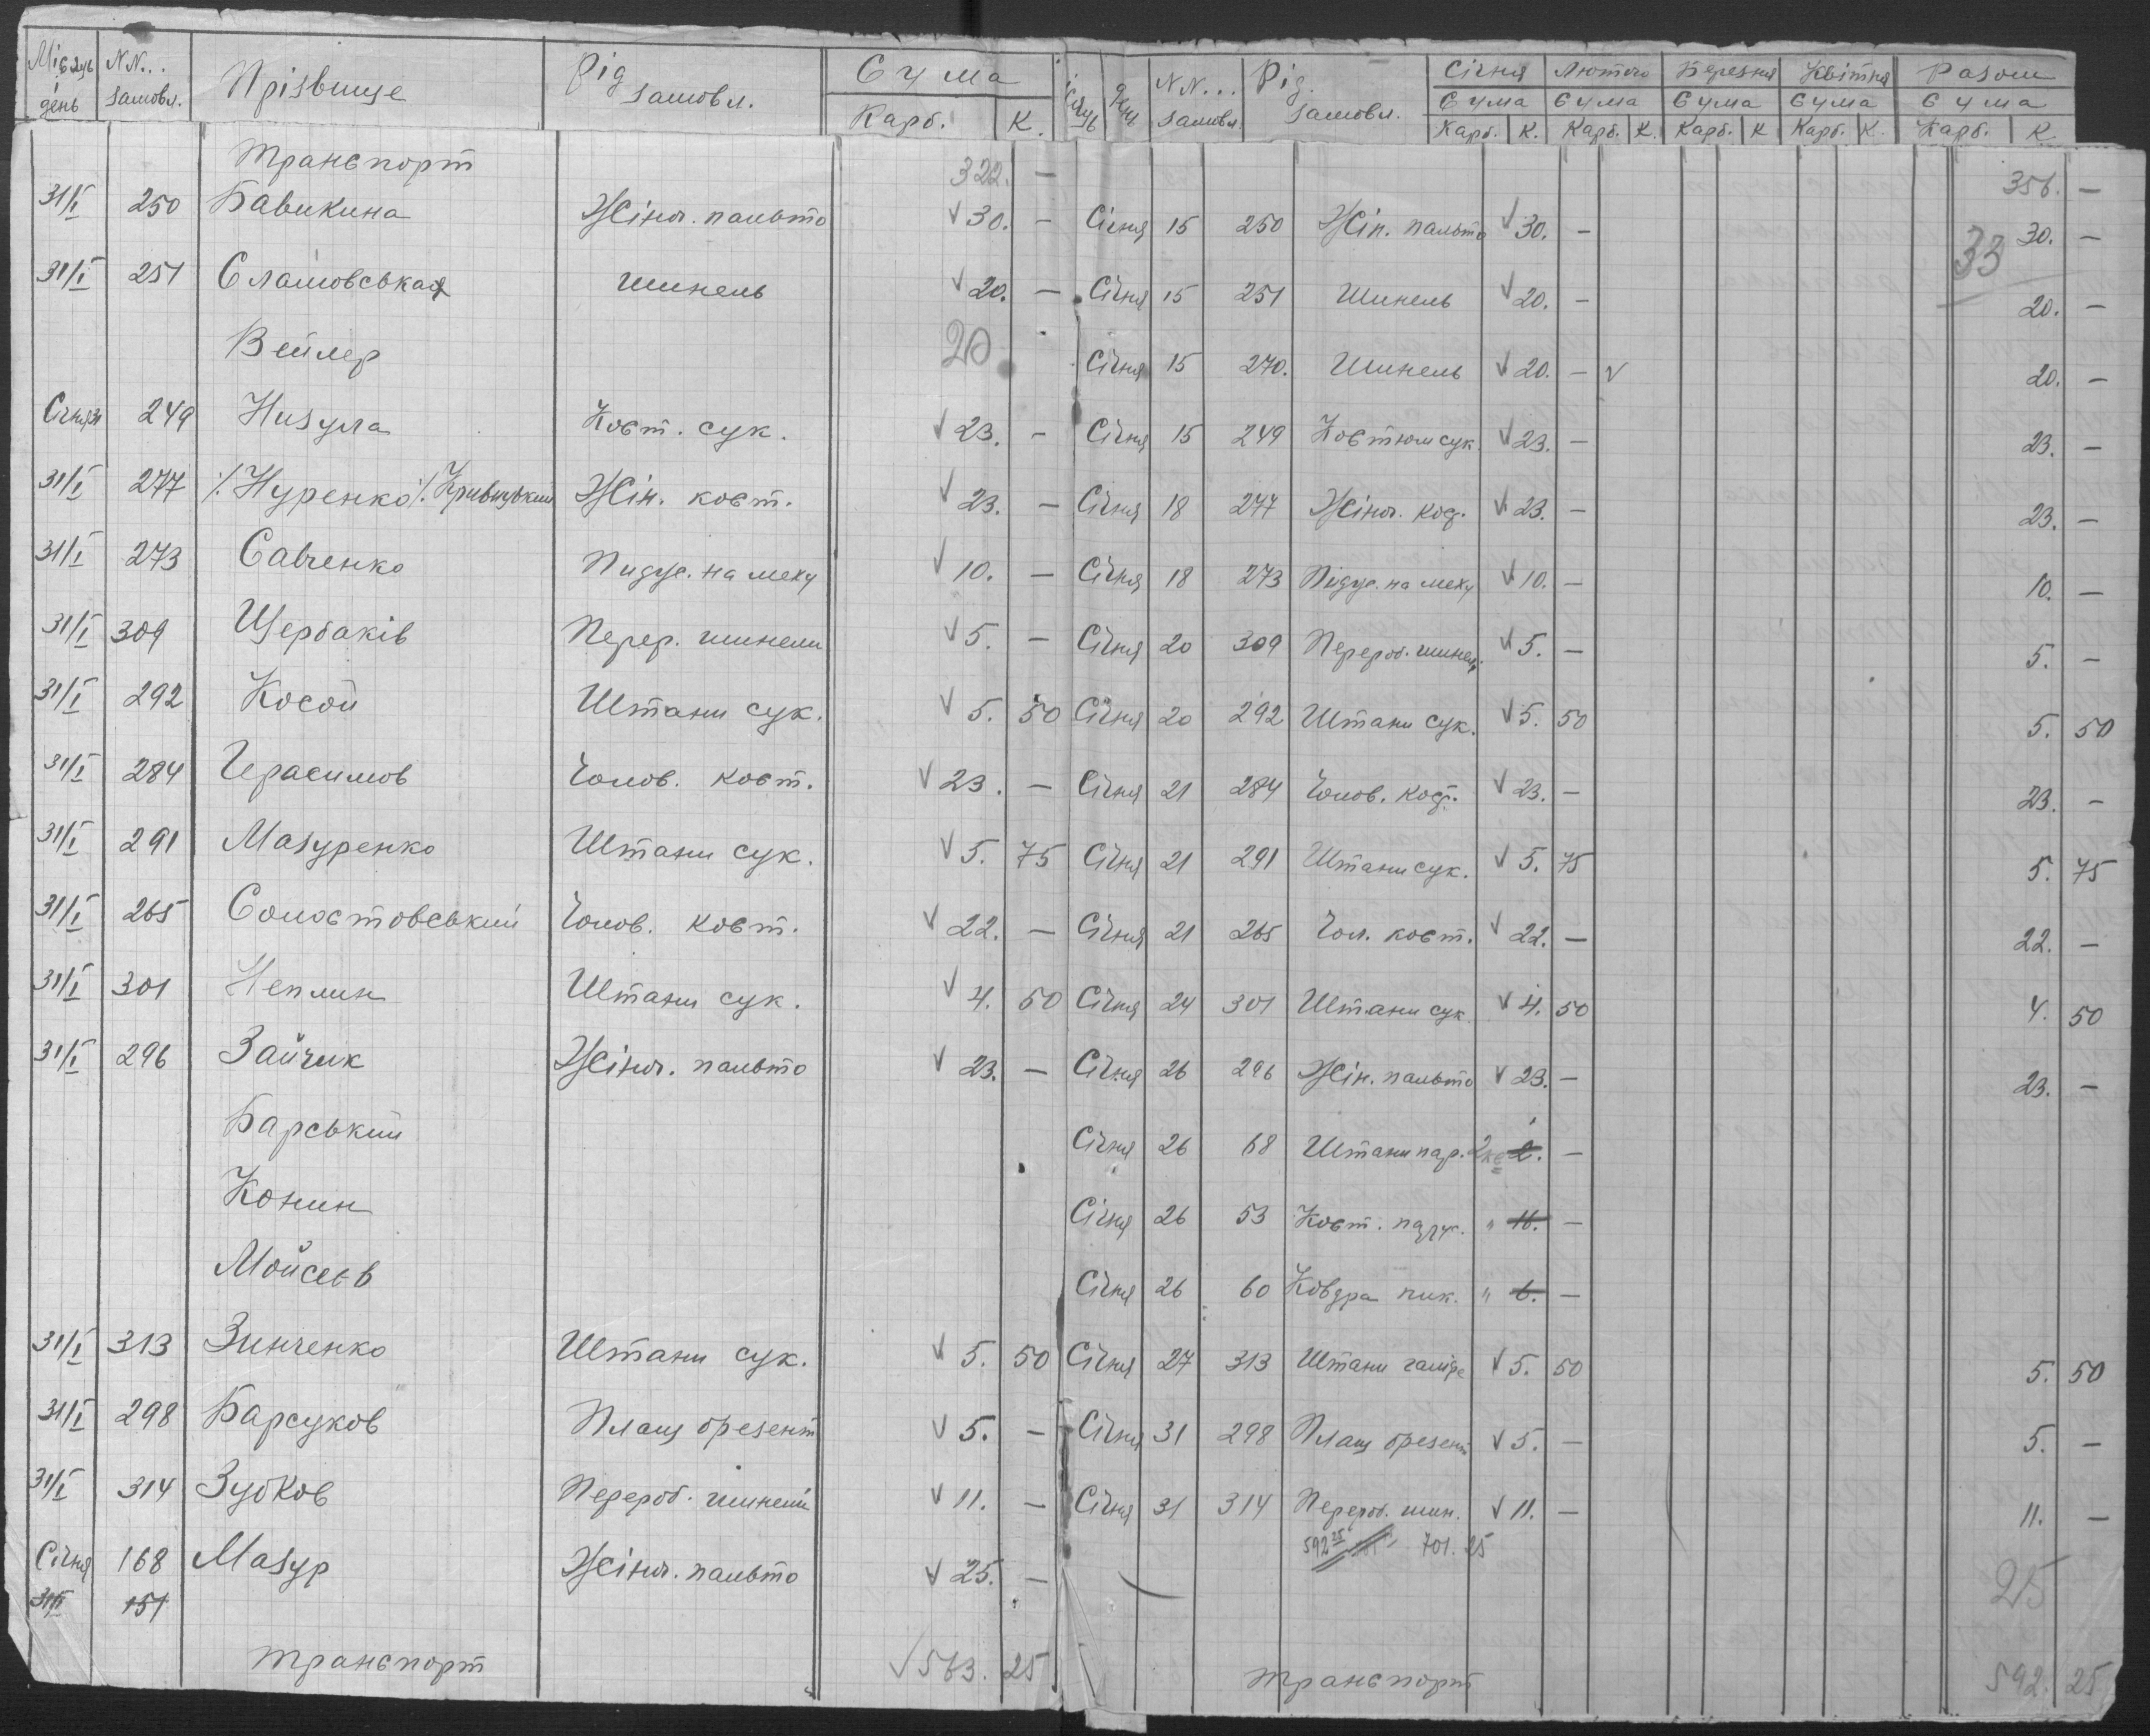 Місяць день | NN.. замовл. | Прізвище | Рід замовл. | Сума Карб. К. | Місяць День | NN... замовл. | Рід замовл. | Січня Сума Карб. К. | Лютого Сума Карб. К. | Березня Сума Карб. К | Квітня Сума Карб. К. | Разом Сума Карб. К.
Транспорт 322. — 356. —
31/I 250 Бавикина Жіноч. пальто √ 30. — Січня 15 250 Жін. пальто √ 30. — 30. —
33
31/I 251 Сламовська Шинель √ 20. — Січня 15 251 Шинель √ 20. — 20. —
Вейлер 20 Січня 15 270. Шинель √ 20. — √ 20. —
Січня 31 249 Низула Кост. сук. √ 23. — Січня 15 249 Костюм сук. √ 23. — 23. —
31/I 277 ٪ Нуренко ٪ Кривицький Жін. кост. √ 23. — Січня 18 277 Жіноч. кос. √ 23. — 23. —
31/I 273 Савченко Пидус. на меху √ 10. — Січня 18 273 Підус. на меху √ 10. — 10. —
31/I 309 Щербаків Перер. шинели √ 5. — Січня 20 309 Перероб. шинел. √ 5. — 5. —
31/I 292 Косой Штани сук. √ 5. 50 Січня 20 292 Штани сук. √ 5. 50 5. 50
31/I 284 Герасимов Чолов. кост. √ 23. — Січня 21 284 Чолов. кост. √ 23. — 23. —
31/I 291 Мазуренко Штани сук. √ 5. 75 Січня 21 291 Штани сук. √ 5. 75 5. 75
31/I 265 Солостовський Чолов. кост. √ 22. — Січня 21 265 Чол. кост. √ 22. — 22. —
31/I 301 Неплин Штани сук. √ 4. 50 Січня 24 301 Штани сук. √ 4. 50 4. 50
31/I 296 Зайчик Жіноч. пальто √ 23. — Січня 26 296 Жін. пальто √ 23. — 23. —
Барський Січня 26 68 Штани пар. 2. —
Конин Січня 26 53 Кост. " 16. —
Мойсеєв Січня 26 60 Ковдра пик. " 6. —
31/I 313 Зинченко Штани сук. √ 5. 50 Січня 27 313 Штани √ 5. 50 5. 50
31/I 298 Барсуков Плащ брезент √ 5. — Січня 31 298 Плащ брезент √ 5. — 5. —
31/I 314 Зубков Перероб. шинелі √ 11. — Січня 31 314 Перероб. шин. √ 11. — 11. —
592 25 701. 25
Січня 168 Мазур Жіноч. пальто √ 25. — 25
31/I 151
Транспорт √ 563. 25 Транспорт 592. 25